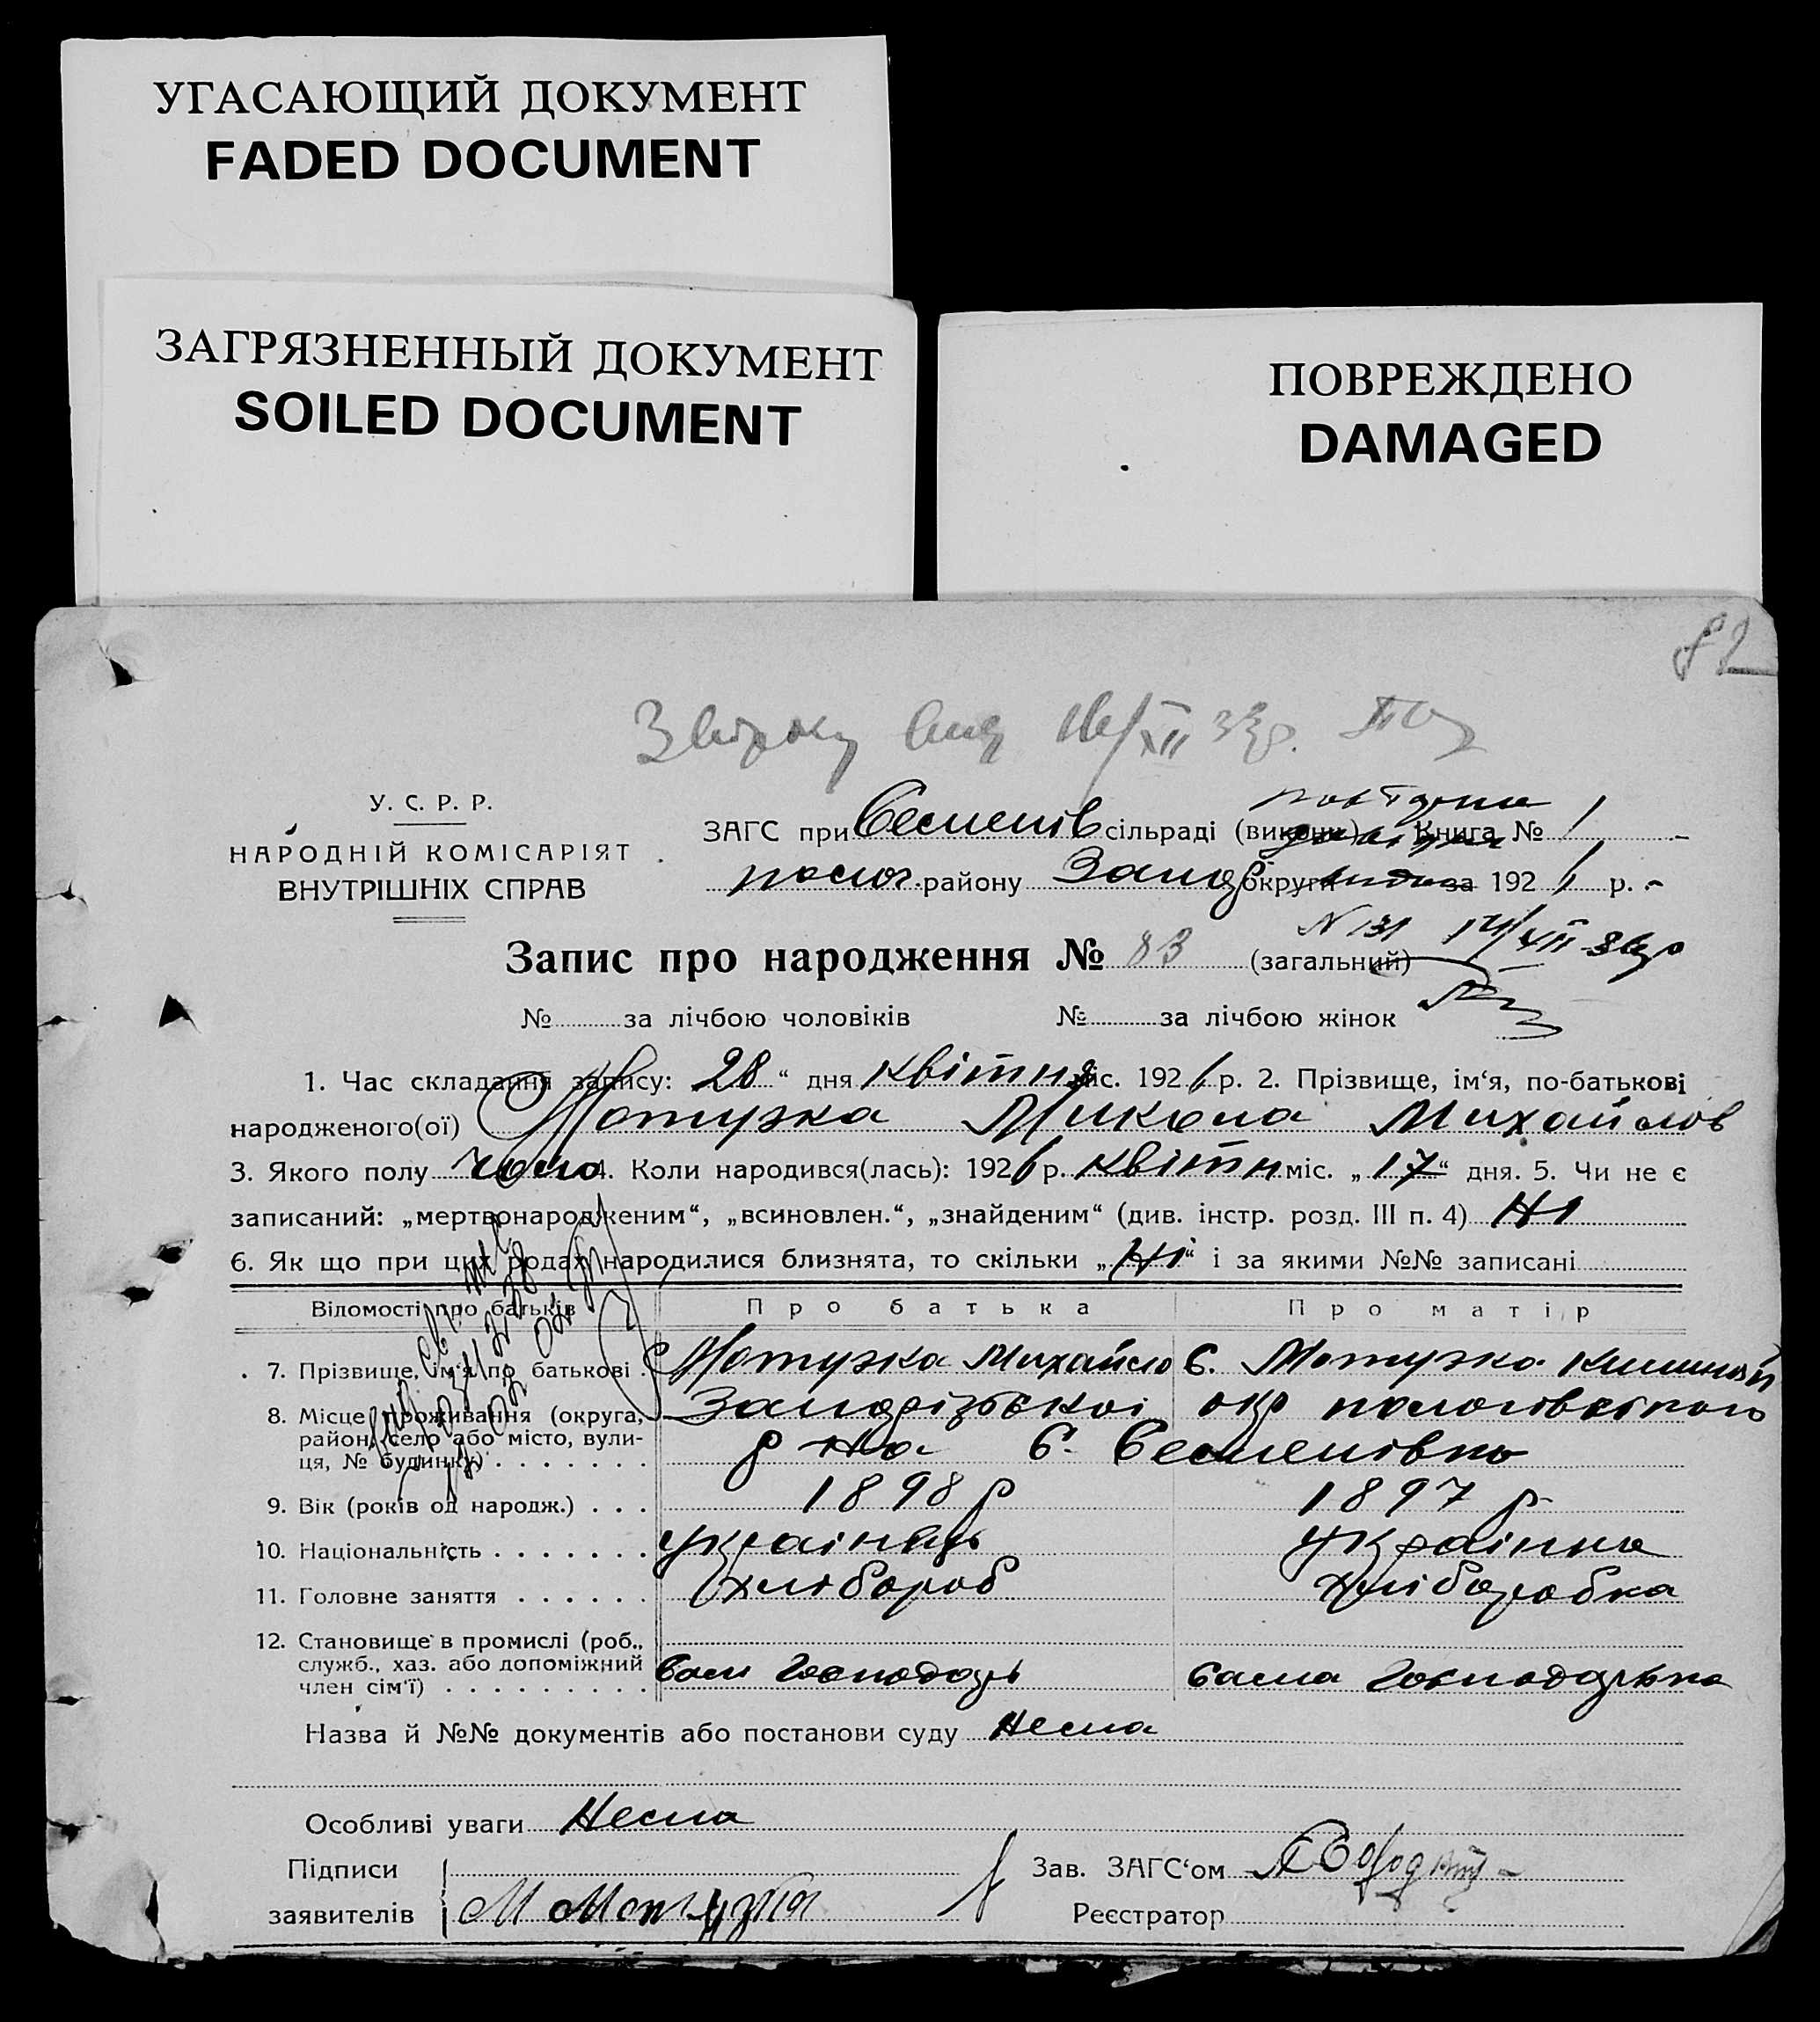 УГАСАЮЩИЙ ДОКУМЕНТ
FADED DOCUMENT
ЗАГРЯЗНЕННЫЙ ДОКУМЕНТ
SOILED DOCUMENT
ПОВРЕЖДЕНО
DAMAGED
82
У. С. Р. Р.
НАРОДНІЙ КОМІСАРІЯТ
ВНУТРІШНІХ СПРАВ
ЗАГС при сільраді (викони) Книга № 1
полог. району Запор округи за 192 р.
Запис про народження № 83 (загальний)
N 131
№ за лічбою чоловіків № за лічбою жінок
1. Час складання запису: 28 “ дня квітня міс. 1926 р. 2. Прізвище, ім‘я, по-батькові
народженого(ої) Мотузка Микола Михайлов
3. Якого полу чоло 4. Коли народився(лась): 1926 р. квітн міс. „ 17 “ дня. 5. Чи не є
записаний: „мертвонародженим“, „всиновлен.“, „знайденим“ (див. інстр. розд. III п. 4) Ні
6. Як що при цих родах народилися близнята, то скільки „ Ні “ і за якими №№ записані
Відомості про батьків Про батька Про матір
7. Прізвище, ім‘я по батькові . Мотузка Михайло Є. Мотузка
8. Місце проживання (округа, район, село або місто, вулиця, № будинку) . . . . . . . Запорізської окр пологівського
р на с.
9. Вік (років од народж.) . . . 1898 р 1897 р
10. Національність . . . . . . . українець українка
11. Головне заняття . . . . . . хлібороб хліборобка
12. Становище в промислі (роб., служб., хаз. або допоміжний член сім‘ї) . . . . . . . . . сам господарь сама господарька
Назва й №№ документів або постанови суду Нема
Особливі уваги Нема
Підписи
заявителів М Мотузка
Зав. ЗАГС‘ом
Реєстратор